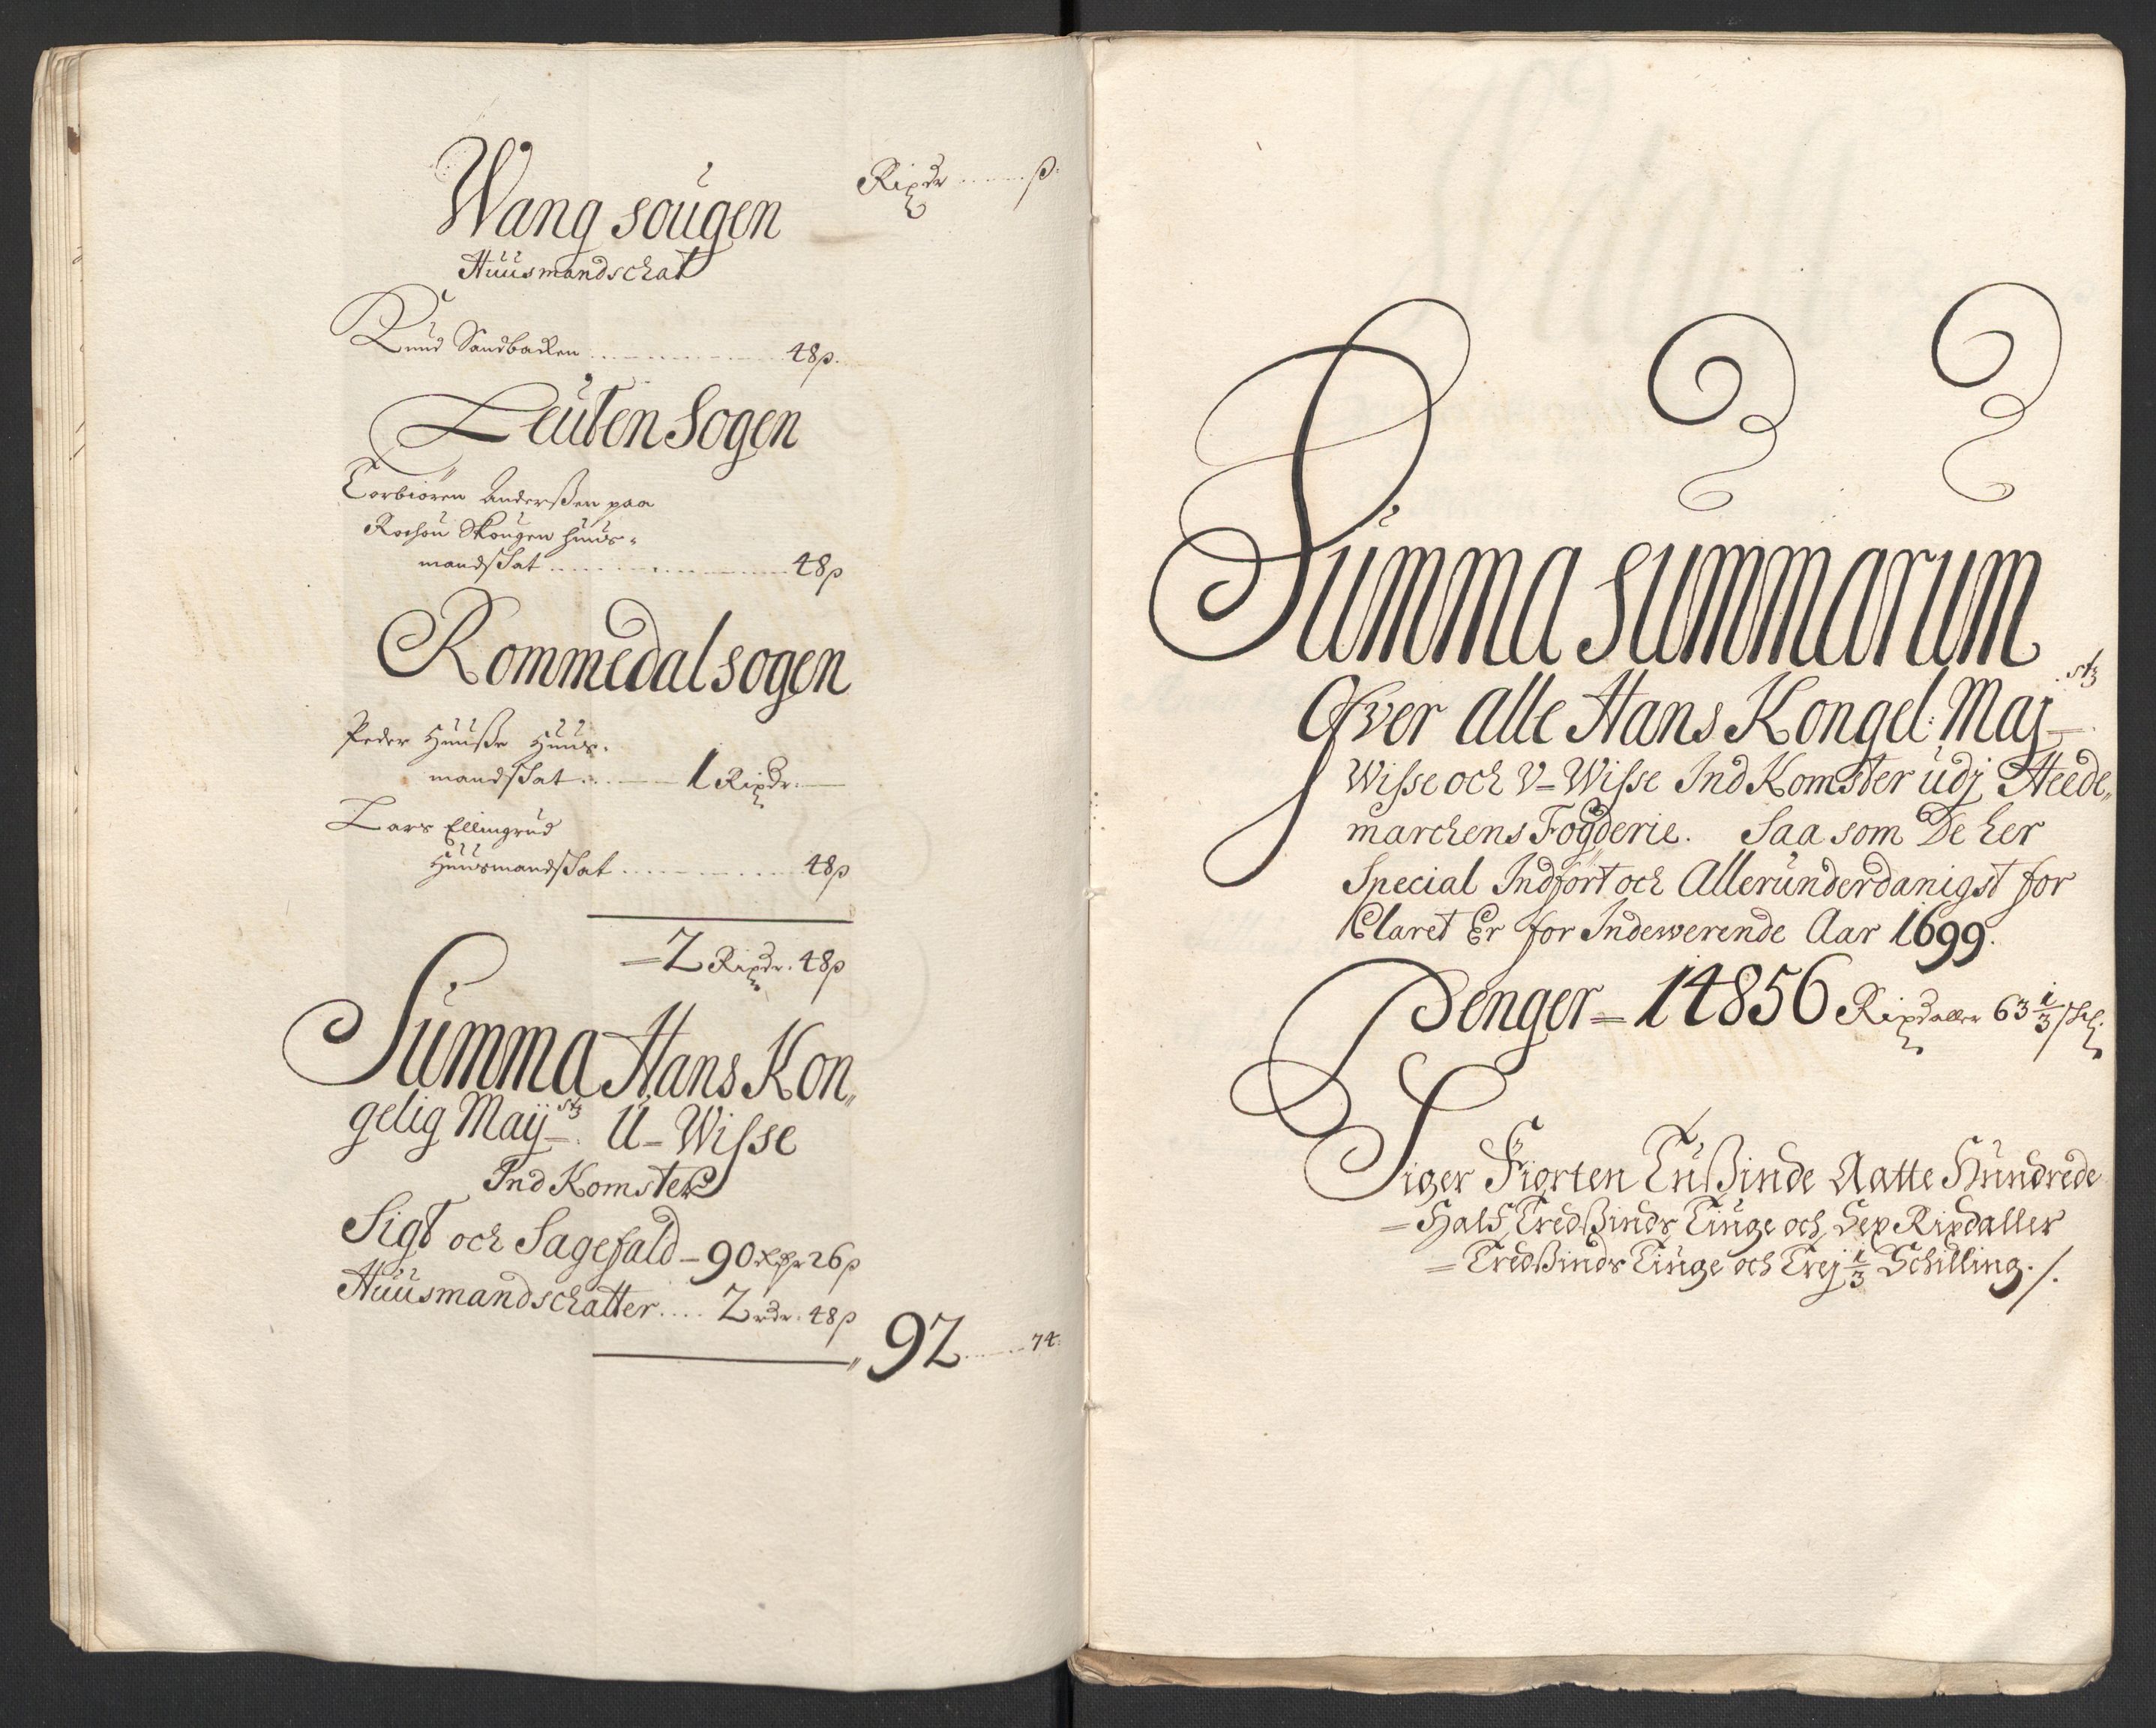 Rixdr ...... ß.
Wang sougen
Huusmandschat
Knud Sandbacken ........ 48ß.
Leuten Sogen
Torbiören Anderßen paa
Rochou Skougen Huus-
mandskat ........ 48ß
Rommedal sogen
Peder Huuße Huus-
mandskat ... 1 Rixdr.
Lars Ellingrud
Huusmandskat ........ 48ß
= 2 Rixdr. 48ß
Summa Hans Kon„
gelig Mayst: U-Wisse
Ind Komster
Sigt och Sagefald - 90 rdr 26ß
Huusmandschatter .... 2 rdr. 48ß
92 ..... 74.
Summa summarum
Ofver alle Hans Kongel: Majstz
Wisse och V-Wisse Ind Komster udj Heede„
marchens Fogderie. Saa som De her
Special Indfört och Allerunderdanigst for
Claret Er for Indewerende Aar 1699.
Penger = 14856 Rixdaller 63 1/3 skl:
Siger Fiorten Tußinde Aatte Hundrede
= Half Tredßinds Tiuge och Sex Rixdaller
= Tredßinds Tiuge och Trej 1/3 Schilling. /.